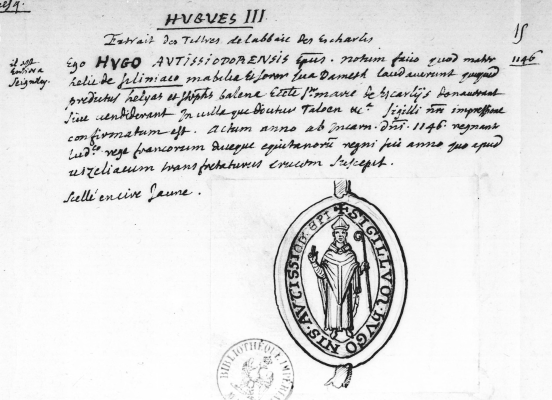 HUGUES III
15
Extrait des Tiltres de labbaie des Escharlis
1146
il est
Ego HUGO AUTISSIODORENSIS Epus. notum facio quod mater
helie de Seliniaco mabelia et soror sua Dameth laudaverunt quicquid
predictus helyas et stephs balena Eccle Ste marie de Escarleijs donaverant
sive vendiderant In villa que dicitur Taloen &c. sigilli nri impressione
confirmatum est. Actum anno ab Incarn. dni. 1146. regnante
lud.co rege francorum duceque equitanorū regni sui anno quo apud
vizeliacum transfretaturus crucem suscepit.
Scellé en cire Jaune.
✠ SIGILLUM · HUGONIS · AUTISSIODOR EPI
BIBLIOTHÈQUE IMPÉRIALE